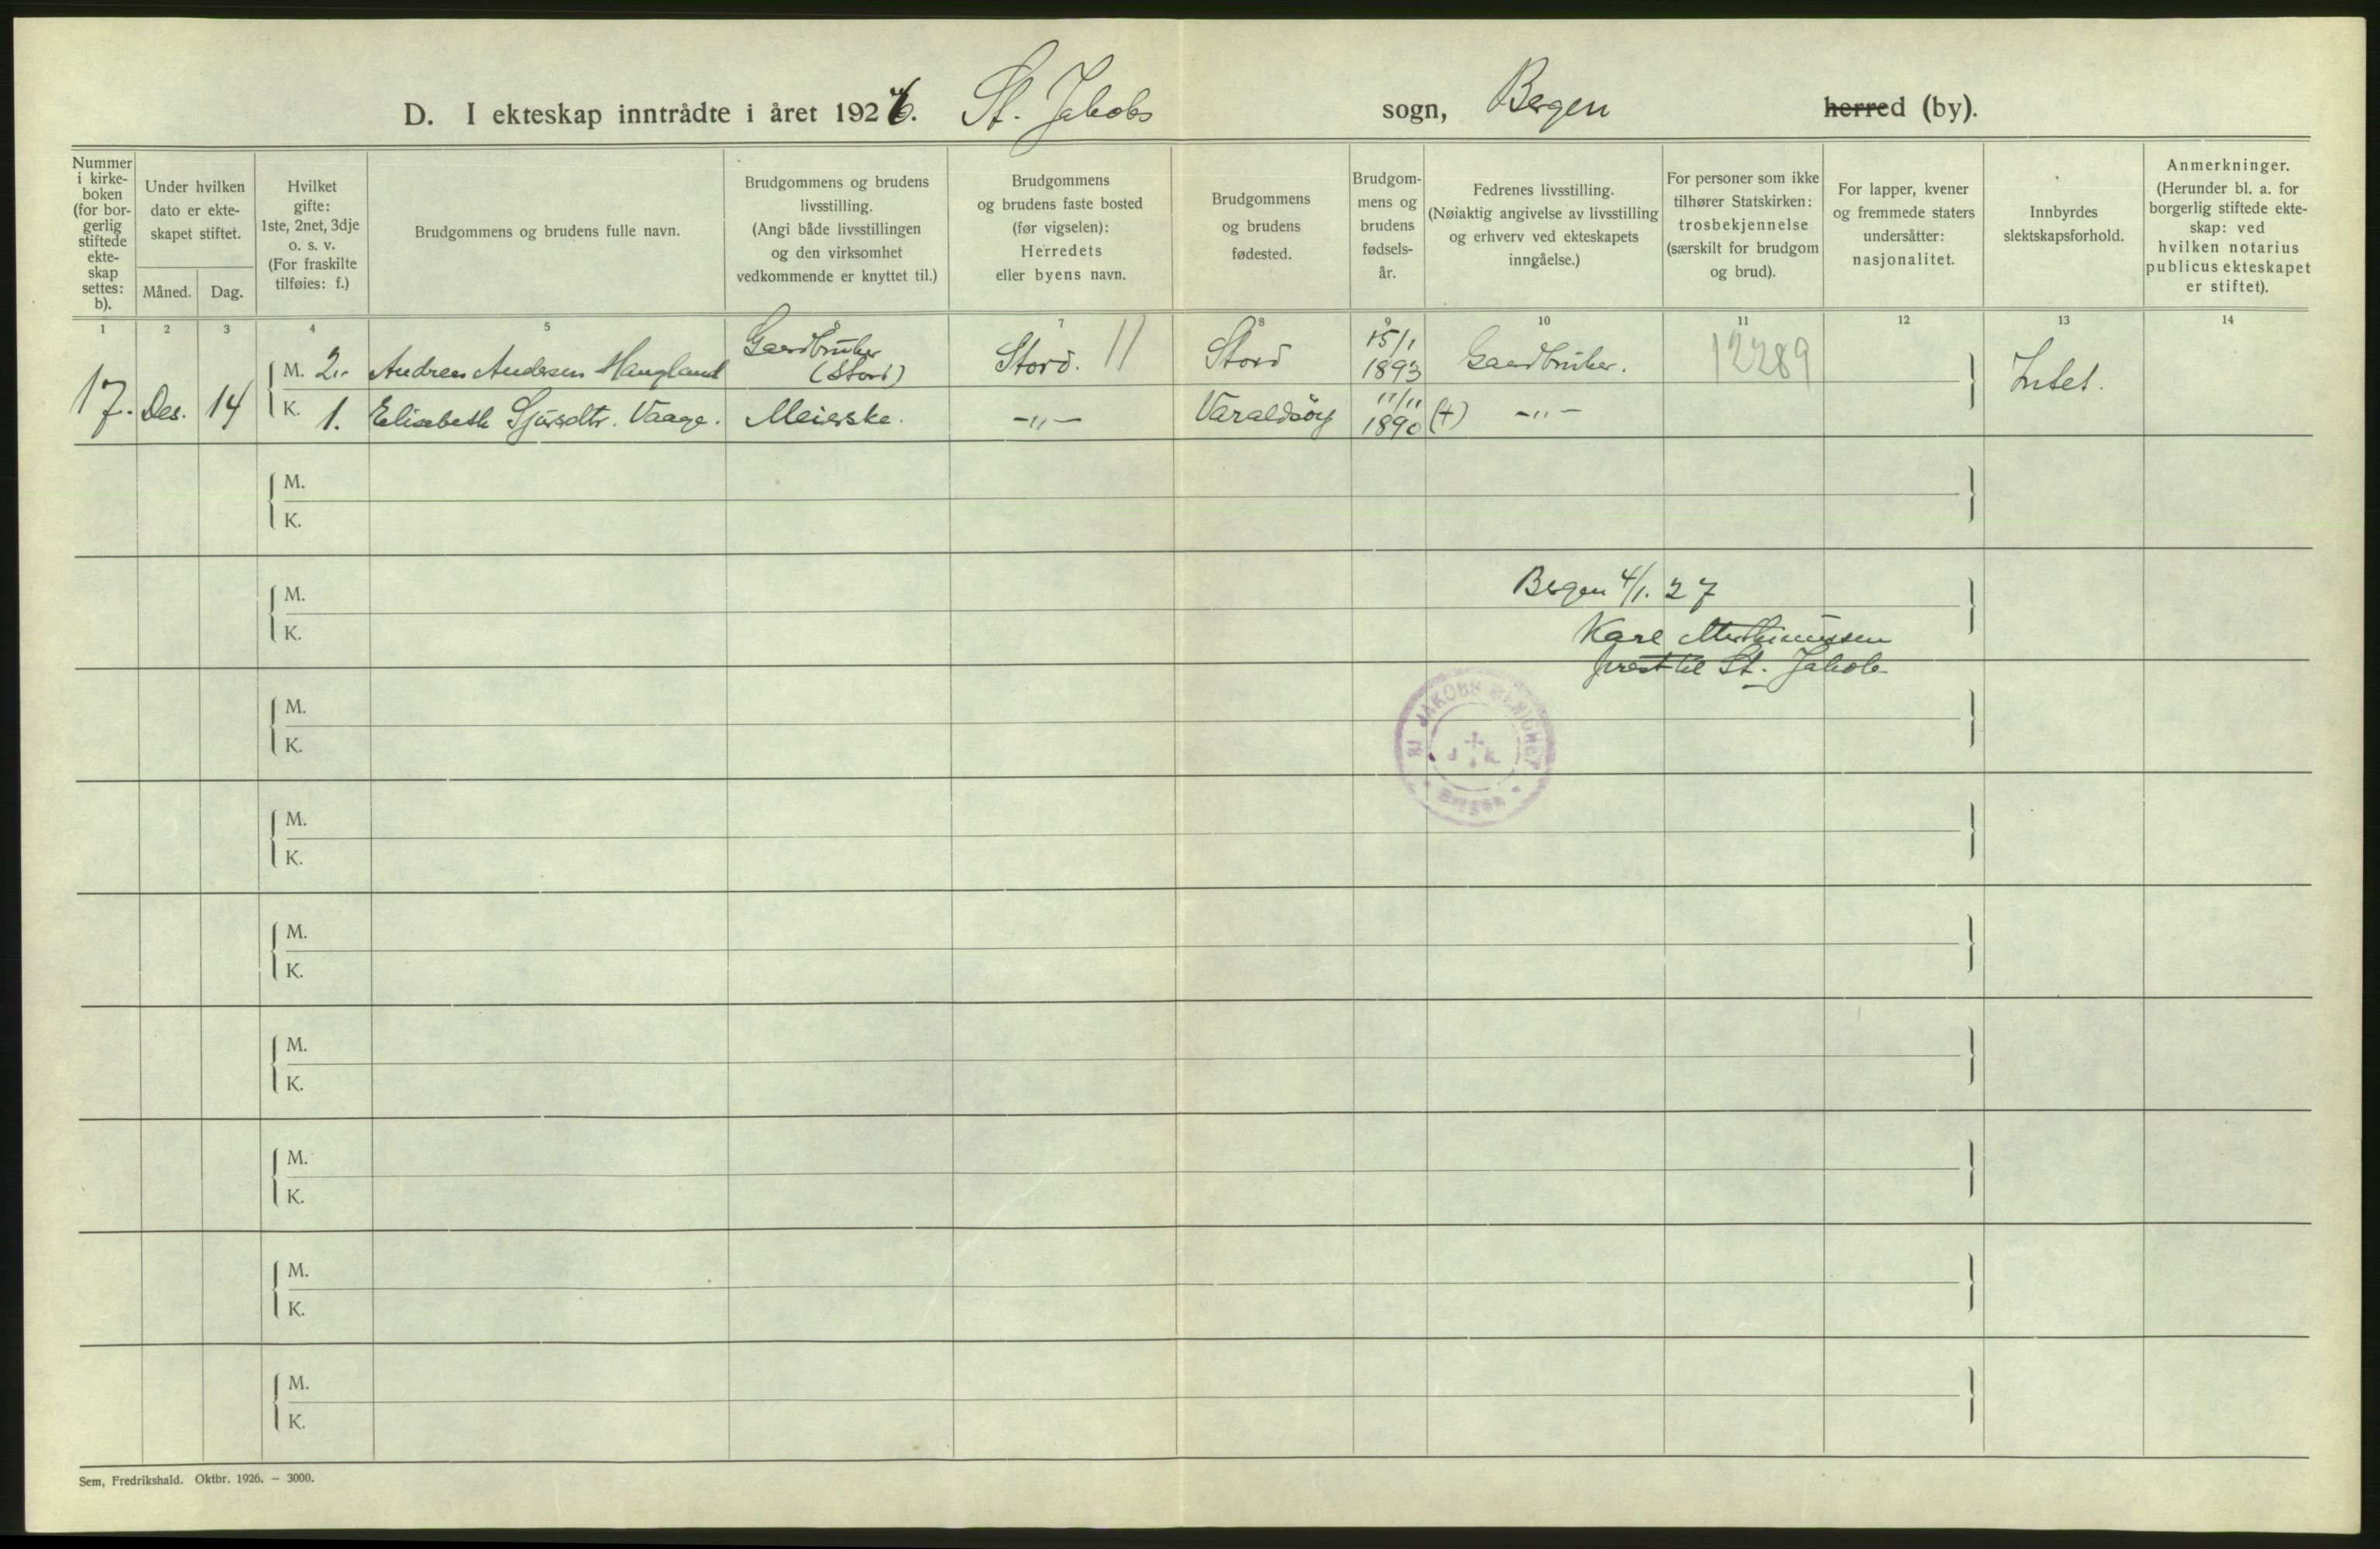 D. I ekteskap inntrådte i året 1926. St. Jakobs sogn, Bergen herred (by).
Nummer i kirke-boken (for bor-gerlig stiftede ekte-skap settes: b).
Under hvilken dato er ekte-skapet stiftet.
Måned. Dag.
Hvilket gifte: 1ste, 2net, 3dje o. s. v. (For fraskilte tilføies: f.)
Brudgommens og brudens fulle navn.
Brudgommens og brudens livsstilling. (Angi både livsstillingen og den virksomhet vedkommende er knyttet til.)
Brudgommens og brudens faste bosted (før vigselen): Herredets eller byens navn.
Brudgommens og brudens fødested.
Brudgom-mens og brudens fødsels-år.
Fedrenes livsstilling. (Nøiaktig angivelse av livsstilling og erhverv ved ekteskapets inngåelse.)
For personer som ikke tilhører Statskirken: trosbekjennelse (særskilt for brudgom og brud).
For lapper, kvener og fremmede staters undersåtter: nasjonalitet.
Innbyrdes slektskapsforhold.
Anmerkninger. (Herunder bl. a. for borgerlig stiftede ekte-skap: ved hvilken notarius publicus ekteskapet er stiftet).
1 2 3 4 5 7 8 9 10 11 12 13 14
17. Des. 14
M. 2. Andreas Andersen Haugland Gaardbruker (Stord) Stord. 11 Stord 15/1 1893 Gaardbruker. 12289 Intet.
K. 1. Elisabeth Sjursdtr. Vaage. Meierske. -"- Varaldsöy 11/11 1890 (+) -"-
M.
K.
M.
K.
Bergen 4/1. 27
Karl
prest til St. Jakob
M.
K.
ST. JAKOBS MENIGHET
J K
M.
K.
M.
K.
M.
K.
M.
K.
M.
K.
M.
K.
Sem, Fredrikshald. Oktbr. 1926. – 3000.